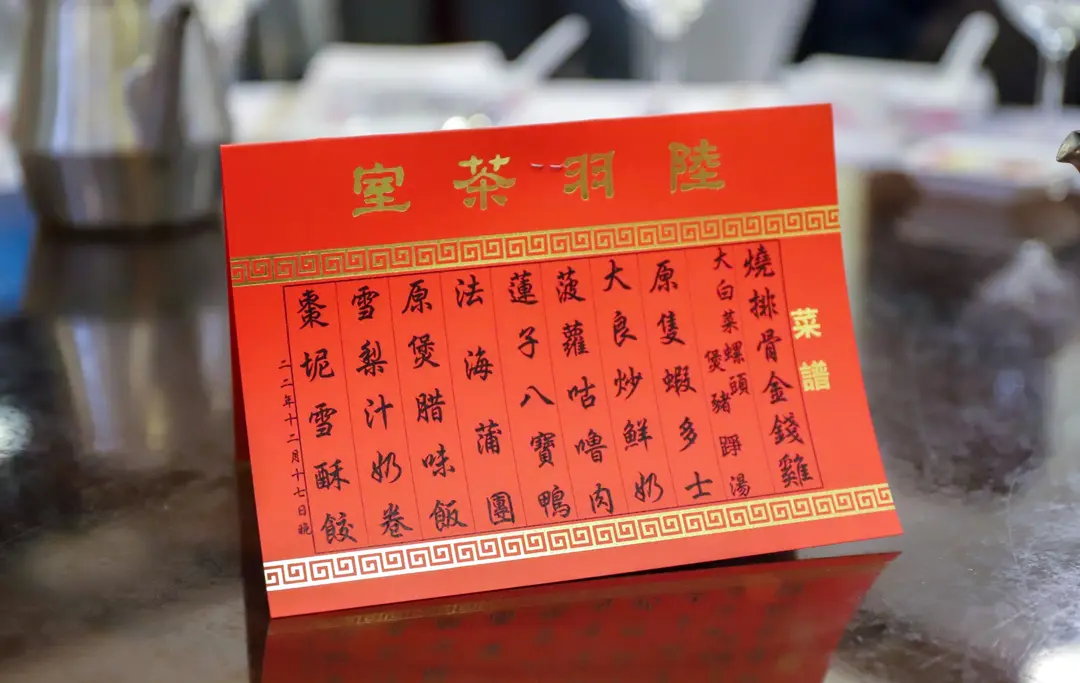 陸羽茶室
菜譜
燒排骨金錢雞
大白菜螺頭煲豬踭湯
原隻蝦多士
大良炒鮮奶
菠蘿咕嚕肉
蓮子八寶鴨
法海蒲團
原煲腊味飯
雪梨汁奶卷
棗坭雪酥餃
二二年十二月十七日晚